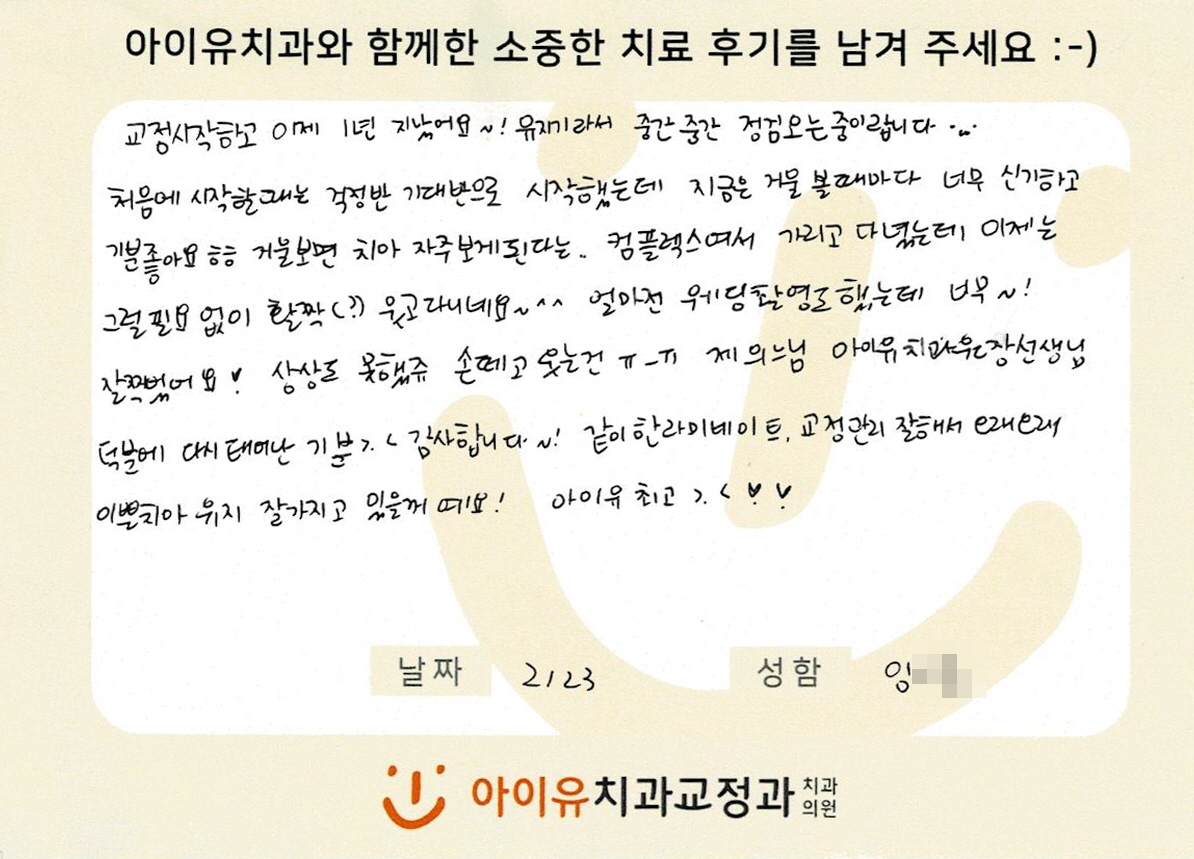 아이유치과와 함께한 소중한 치료 후기를 남겨 주세요 :-)
교정시작하고 이제 1년 지났어요~! 유지기라서 중간중간 점검오는중이랍니다
처음에 시작할때는 걱정반 기대반으로 시작했는데 지금은 거울 볼때마다 너무 신기하고
기분좋아요 ㅎㅎ 거울보면 치아 자주보게된다는.. 컴플렉스여서 가리고 다녔는데 이제는
그럴필요 없이 활짝(?) 웃고다니네요~^^ 얼마전 웨딩촬영도했는데 너무~!
잘찍었어요♥ 상상도 못했쥬 손떼고 웃는건 ㅠ_ㅠ 제 의느님 아이유치과 원장선생님
덕분에 다시태어난 기분>.< 감사합니다~! 같이한라미네이트, 교정관리 잘해서 오래오래
이쁜치아 유지 잘가지고 있을께예요! 아이유 최고 >.< ♥ ♥
날짜 2/23 성함 임
아이유치과교정과 치과의원